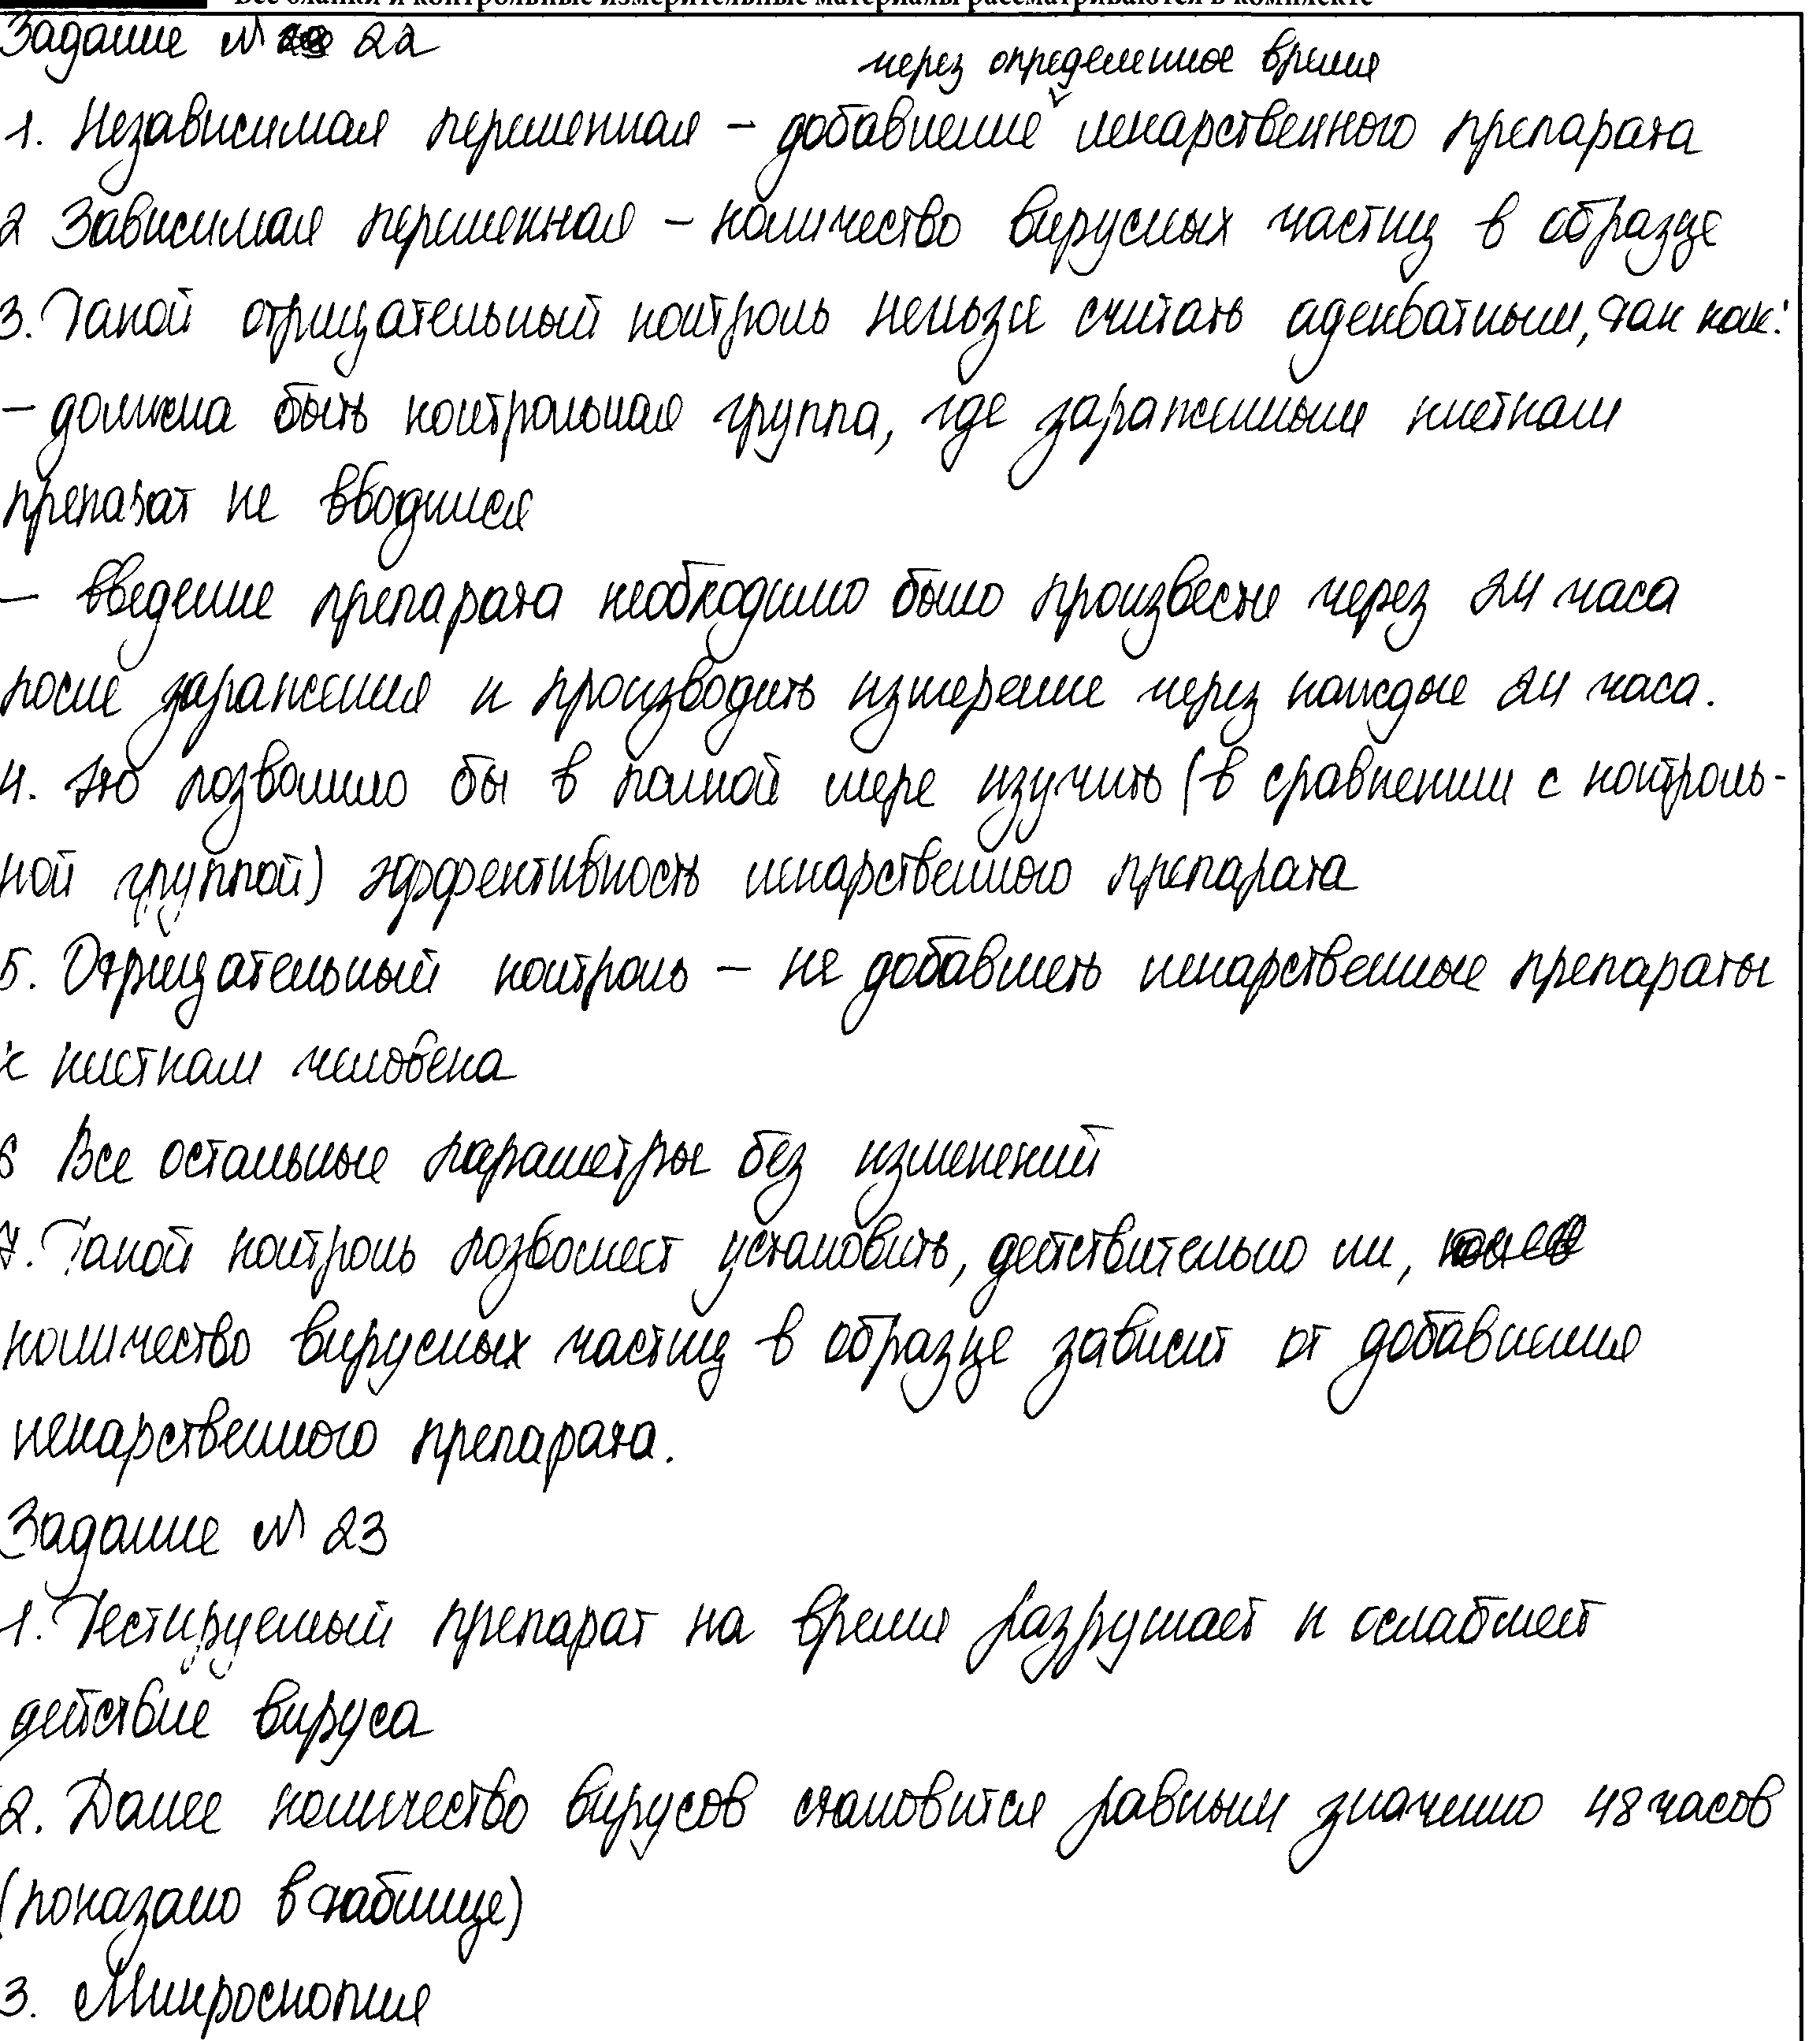 Все бланки и контрольные измерительные материалы рассматриваются в комплекте
Задание № 22
через определенное время
1. Независимая переменная – добавление лекарственного препарата
2 Зависимая переменная – количество вирусных частиц в образце
3. Такой отрицательный контроль нельзя считать адекватным, так как:
– должна быть контрольная группа, где зараженным клеткам
препарат не вводился
– введение препарата необходимо было произвести через 24 часа
после заражения и производить измерение через каждые 24 часа.
4. Это позволило бы в полной мере изучить (в сравнении с контроль-
ной группой) эффективность лекарственного препарата
5. Отрицательный контроль – не добавлять лекарственные препараты
к клеткам человека
6 Все остальные параметры без изменений
7. Такой контроль позволяет установить, действительно ли,
количество вирусных частиц в образце зависит от добавления
лекарственного препарата.
Задание № 23
1. Тестируемый препарат на время разрушает и ослабляет
действие вируса
2. Далее количество вирусов становится равным значению 48 часов
(показано в таблице)
3. Микроскопия